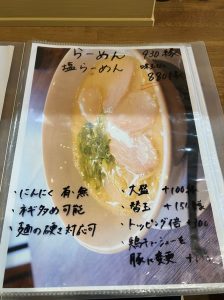 らーめん
塩らーめん
880
・にんにく 有・無
・ネギ多め可能
・麺の硬さ対応可
・大盛 +100
・替玉 +150
・トッピング倍
・鶏チャーシューを
豚に変更